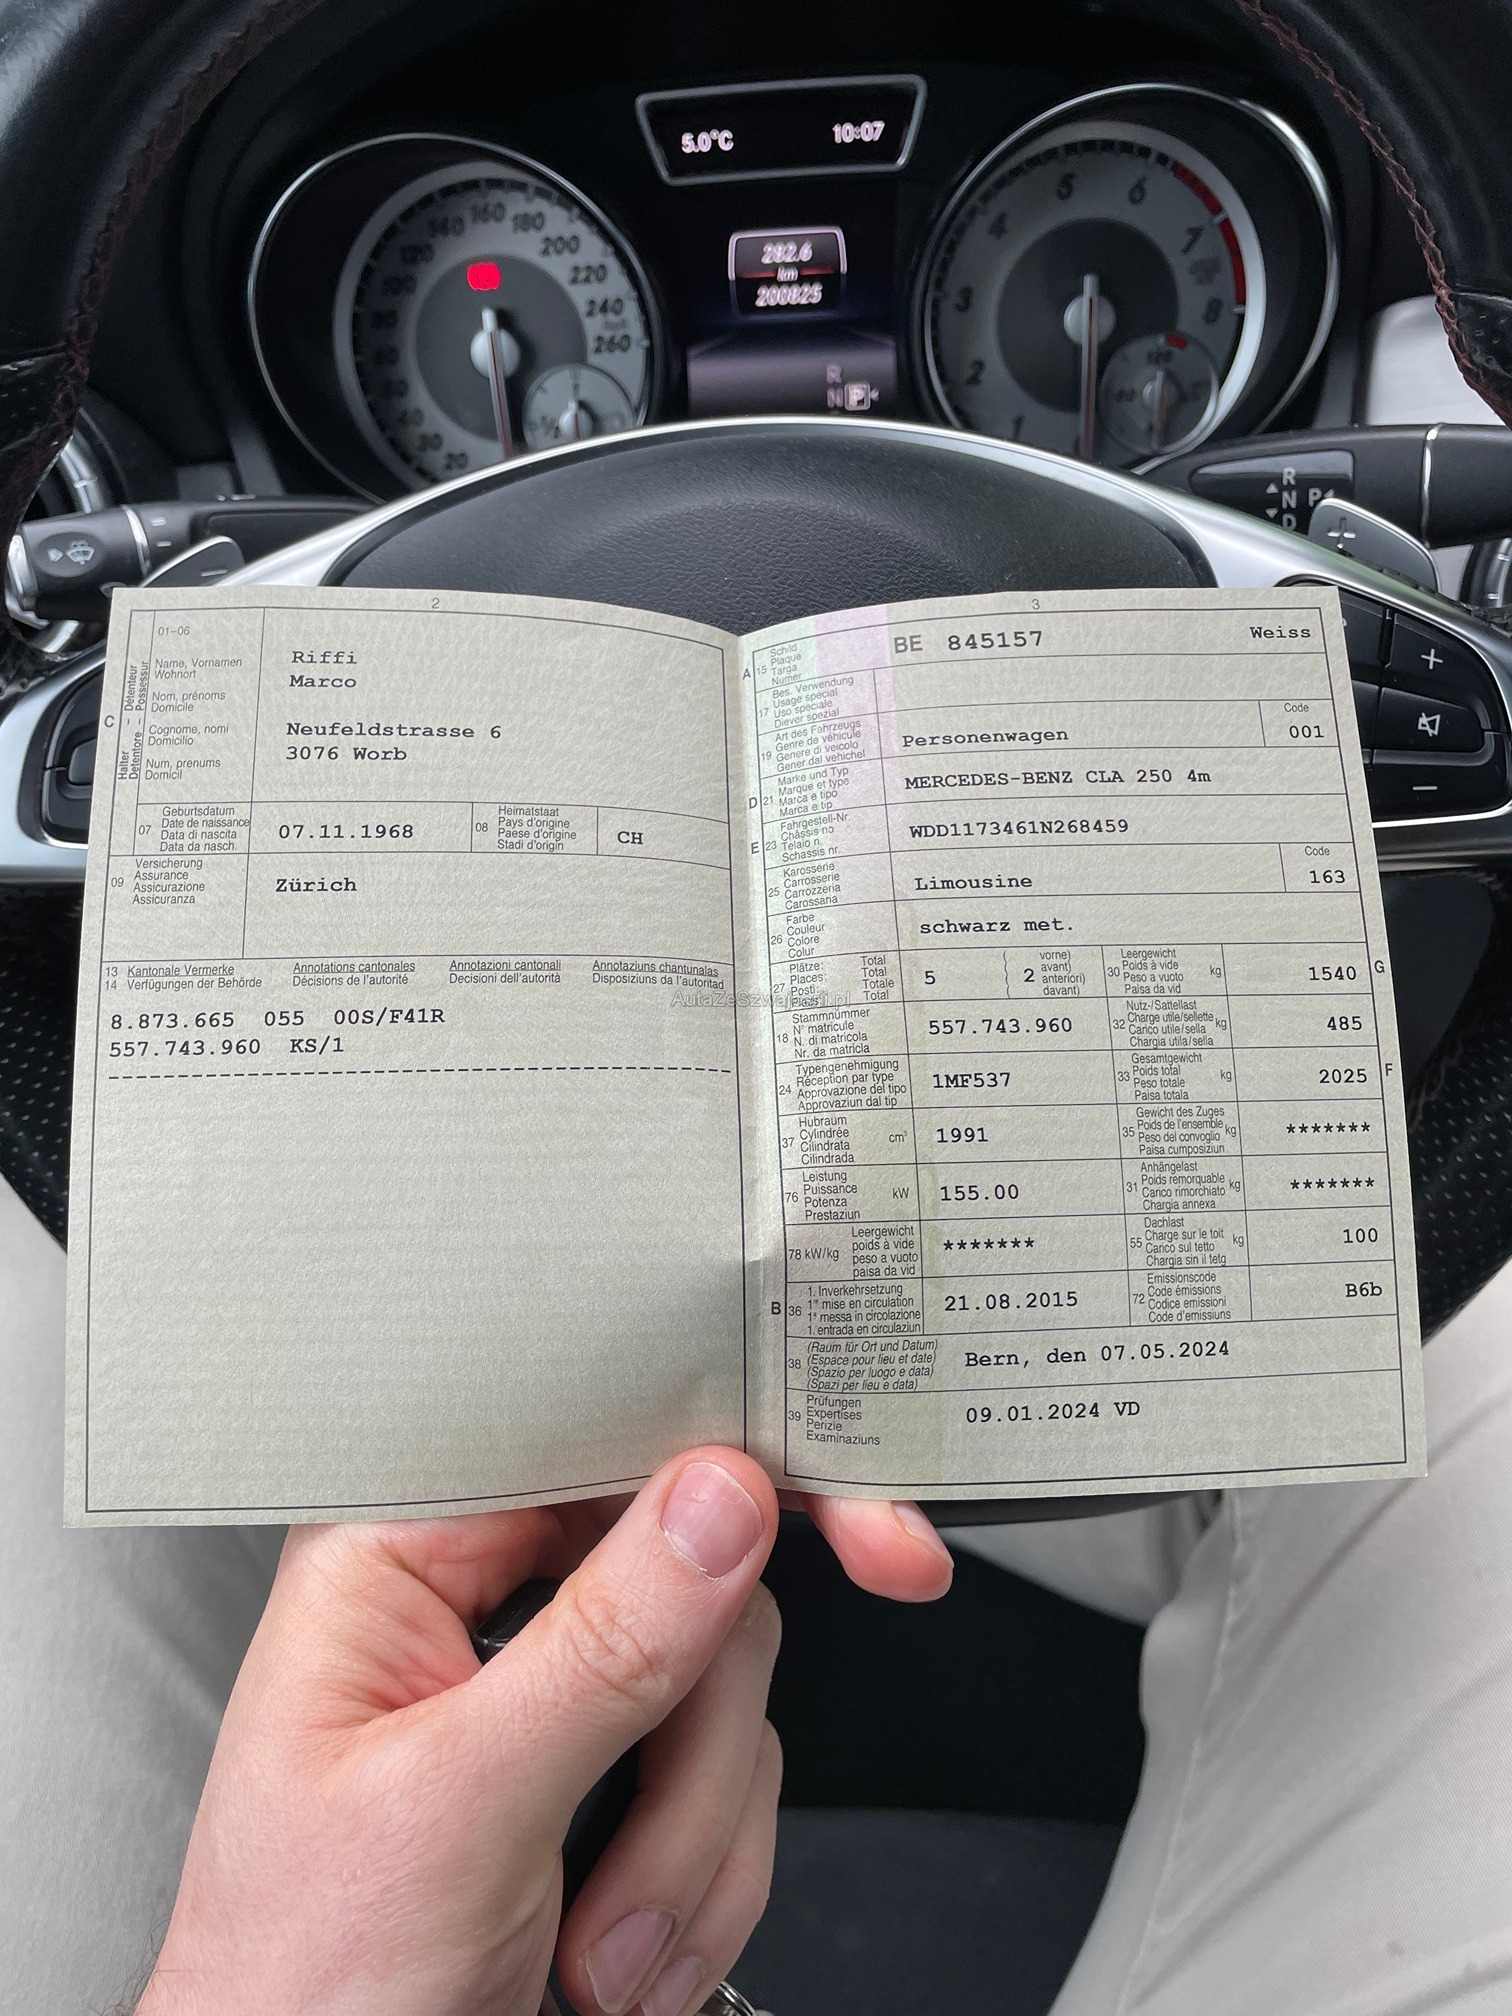 5.0°C 10:07
140 160 180
120 200
100 220
240
260
60
40
20
282.6
km
200825
R
N P
5 6
4 7
3 8
2
1
R
N P
D
2
01-06
Name, Vornamen
Wohnort
Nom, prénoms
Domicile
Cognome, nomi
Domicilio
Num, prenums
Domicil
C
Halter – Détenteur
Detentore – Possessur
Riffi
Marco
Neufeldstrasse 6
3076 Worb
07
Geburtsdatum
Date de naissance
Data di nascita
Data da nasch.
07.11.1968
08
Heimatstaat
Pays d'origine
Paese d'origine
Stadi d'origin
CH
09
Versicherung
Assurance
Assicurazione
Assicuranza
Zürich
13 Kantonale Vermerke Annotations cantonales Annotazioni cantonali Annotaziuns chantunalas
14 Verfügungen der Behörde Décisions de l'autorité Decisioni dell'autorità Disposiziuns da l'autoritad
8.873.665 055 00S/F41R
557.743.960 KS/1
AutaZeSzwajcarii.pl
3
A 15
Schild
Plaque
Targa
Numer
BE 845157 Weiss
17
Bes. Verwendung
Usage spécial
Uso speciale
Diever spezial
19
Art des Fahrzeugs
Genre de véhicule
Genere di veicolo
Gener dal vehichel
Personenwagen
Code
001
D 21
Marke und Typ
Marque et type
Marca e tipo
Marca e tip
MERCEDES-BENZ CLA 250 4m
E 23
Fahrgestell-Nr.
Châssis no
Telaio n.
Schassis nr.
WDD1173461N268459
25
Karosserie
Carrosserie
Carrozzeria
Carossaria
Limousine
Code
163
26
Farbe
Couleur
Colore
Colur
schwarz met.
27
Plätze: Total
Places: Total
Posti: Totale
Plazs: Total
5
( vorne)
2 avant)
anteriori)
( davant)
30
Leergewicht
Poids à vide
Peso a vuoto
Paisa da vid
kg
1540
G
18
Stammnummer
N° matricule
N. di matricola
Nr. da matricla
557.743.960
32
Nutz-/Sattellast
Charge utile/sellette
Carico utile/sella
Chargia utila/sella
kg
485
24
Typengenehmigung
Réception par type
Approvazione del tipo
Approvaziun dal tip
1MF537
33
Gesamtgewicht
Poids total
Peso totale
Paisa totala
kg
2025
F
37
Hubraum
Cylindrée
Cilindrata
Cilindrada
cm³
1991
35
Gewicht des Zuges
Poids de l'ensemble
Peso del convoglio
Paisa cumposiziun
kg
*******
76
Leistung
Puissance
Potenza
Prestaziun
kW
155.00
31
Anhängelast
Poids remorquable
Carico rimorchiato
Chargia annexa
kg
*******
78 kW/kg
Leergewicht
poids à vide
peso a vuoto
paisa da vid
*******
55
Dachlast
Charge sur le toit
Carico sul tetto
Chargia sin il tetg
kg
100
B 36
1. Inverkehrsetzung
1re mise en circulation
1a messa in circolazione
1. entrada en circulaziun
21.08.2015
72
Emissionscode
Code émissions
Codice emissioni
Code d'emissiuns
B6b
38
(Raum für Ort und Datum)
(Espace pour lieu et date)
(Spazio per luogo e data)
(Spazi per lieu e data)
Bern, den 07.05.2024
39
Prüfungen
Expertises
Perizie
Examinaziuns
09.01.2024 VD